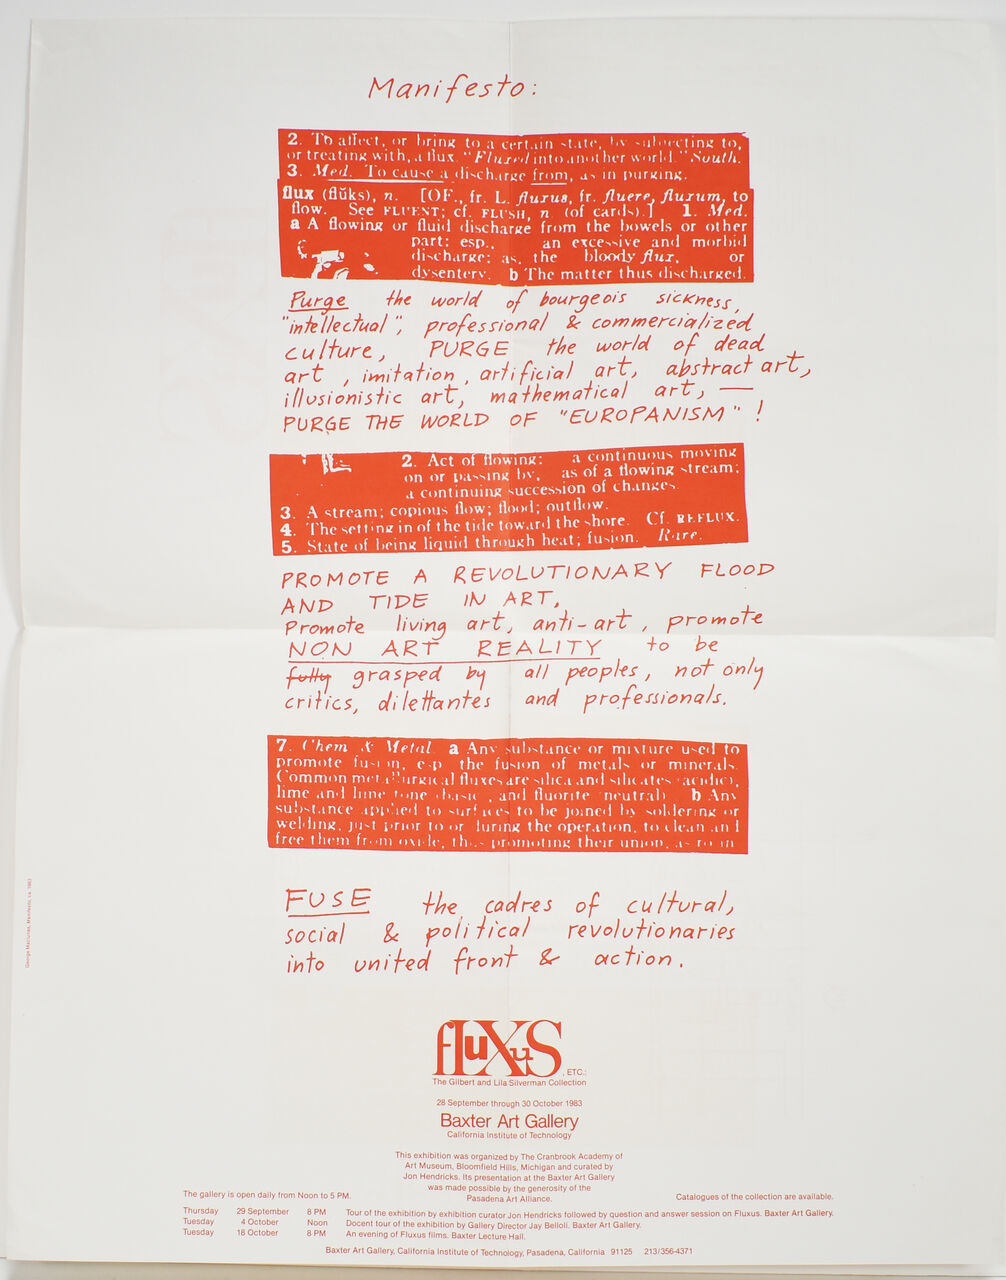 Manifesto:
2. To affect, or bring to a certain state, by subjecting to,
or treating with, a flux. "Fluxed into another world." South.
3. Med. To cause a discharge from, as in purging.
flux (flŭks), n. [OF., fr. L. fluxus, fr. fluere, fluxum, to
flow. See FLUENT; cf. FLUSH, n. (of cards).] 1. Med.
a A flowing or fluid discharge from the bowels or other
part; esp., an excessive and morbid
discharge; as, the bloody flux, or
dysentery. b The matter thus discharged.
Purge the world of bourgeois sickness,
"intellectual", professional & commercialized
culture, PURGE the world of dead
art, imitation, artificial art, abstract art,
illusionistic art, mathematical art, —
PURGE THE WORLD OF "EUROPANISM"!
2. Act of flowing: a continuous moving
on or passing by, as of a flowing stream;
a continuing succession of changes.
3. A stream; copious flow; flood; outflow.
4. The setting in of the tide toward the shore. Cf. REFLUX.
5. State of being liquid through heat; fusion. Rare.
PROMOTE A REVOLUTIONARY FLOOD
AND TIDE IN ART,
Promote living art, anti-art, promote
NON ART REALITY to be
fully grasped by all peoples, not only
critics, dilettantes and professionals.
7. Chem & Metal. a Any substance or mixture used to
promote fusion, esp. the fusion of metals or minerals.
Common metallurgical fluxes are silica and silicates (acidic),
lime and limestone (basic), and fluorite (neutral). b Any
substance applied to surfaces to be joined by soldering or
welding, just prior to or during the operation, to clean and
free them from oxide, thus promoting their union, as rosin
FUSE the cadres of cultural,
social & political revolutionaries
into united front & action.
George Maciunas, Manifesto, ca. 1963
fluxus, ETC.:
The Gilbert and Lila Silverman Collection
28 September through 30 October 1983
Baxter Art Gallery
California Institute of Technology
This exhibition was organized by The Cranbrook Academy of
Art Museum, Bloomfield Hills, Michigan and curated by
Jon Hendricks. Its presentation at the Baxter Art Gallery
was made possible by the generosity of the
Pasadena Art Alliance.
The gallery is open daily from Noon to 5 PM.
Catalogues of the collection are available.
Thursday 29 September 8 PM Tour of the exhibition by exhibition curator Jon Hendricks followed by question and answer session on Fluxus. Baxter Art Gallery.
Tuesday 4 October Noon Docent tour of the exhibition by Gallery Director Jay Belloli. Baxter Art Gallery.
Tuesday 18 October 8 PM An evening of Fluxus films. Baxter Lecture Hall.
Baxter Art Gallery, California Institute of Technology, Pasadena, California 91125 213/356-4371